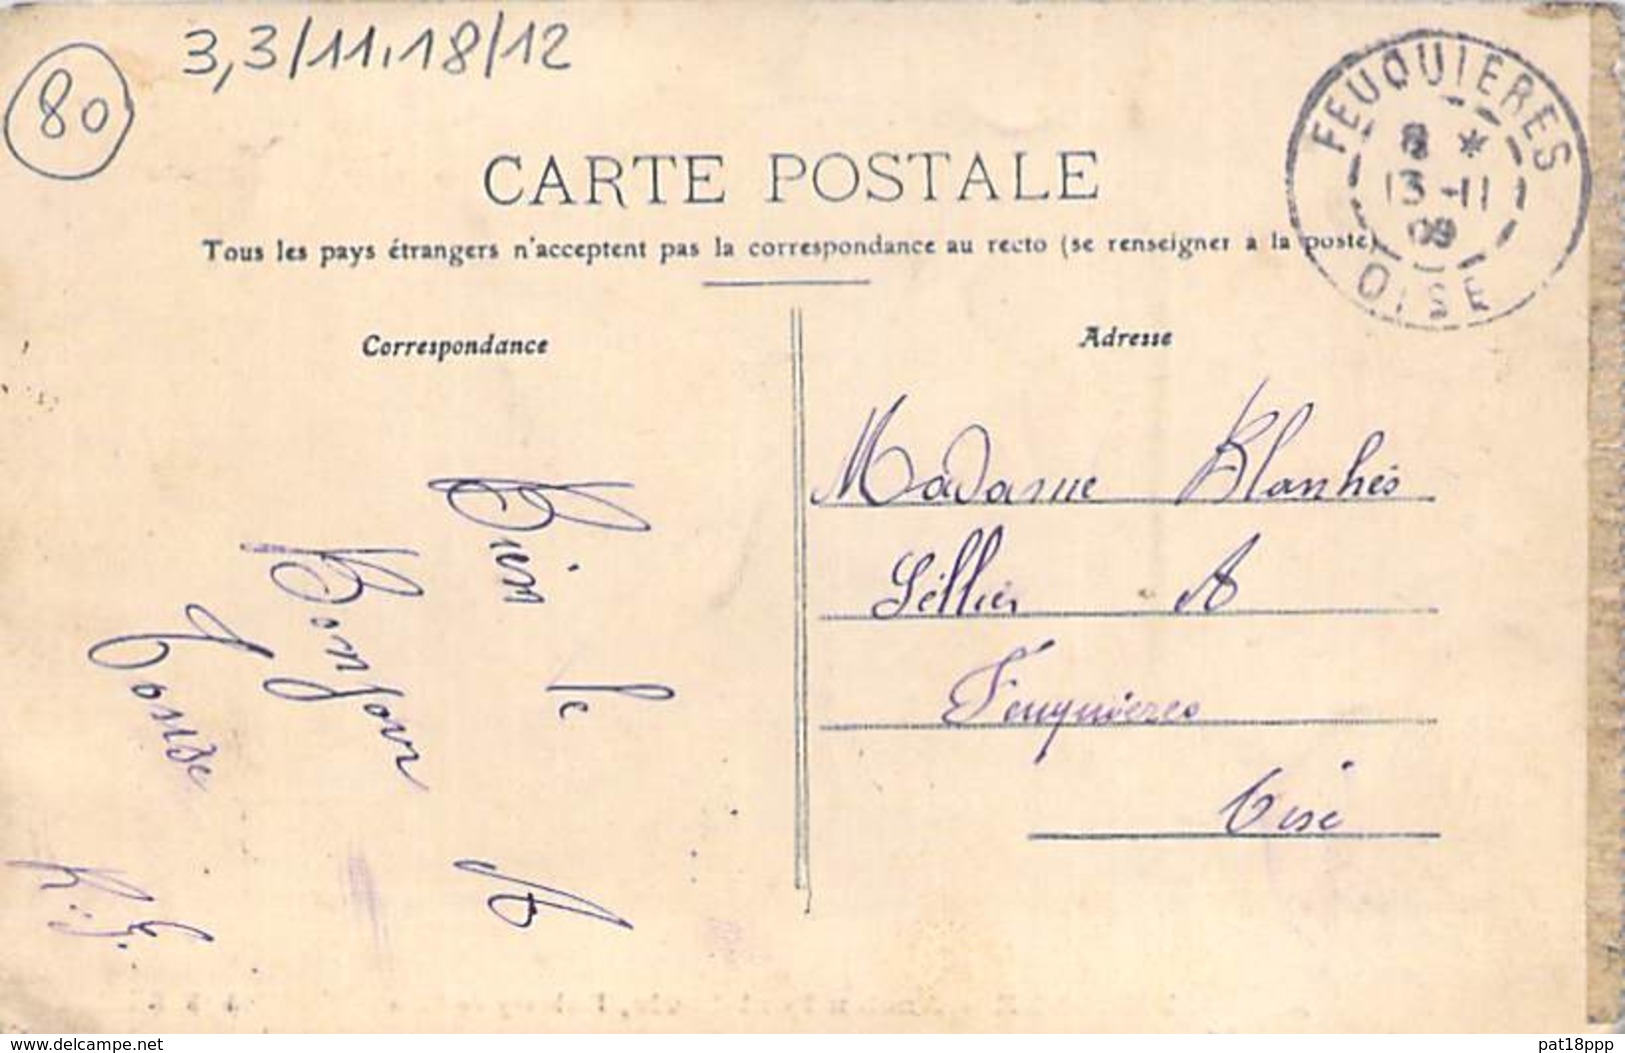 80
3,3/11,18/12
FEUQUIERES
8 *
13 -11
09
OISE
CARTE POSTALE
Tous les pays étrangers n'acceptent pas la correspondance au recto (se renseigner a la poste)
Correspondance
Adresse
Bien le
Bonjour A
Tous de
Madame Blanhés
Séllier A
Feuquières
Oise
www.delcampe.net
pat18ppp